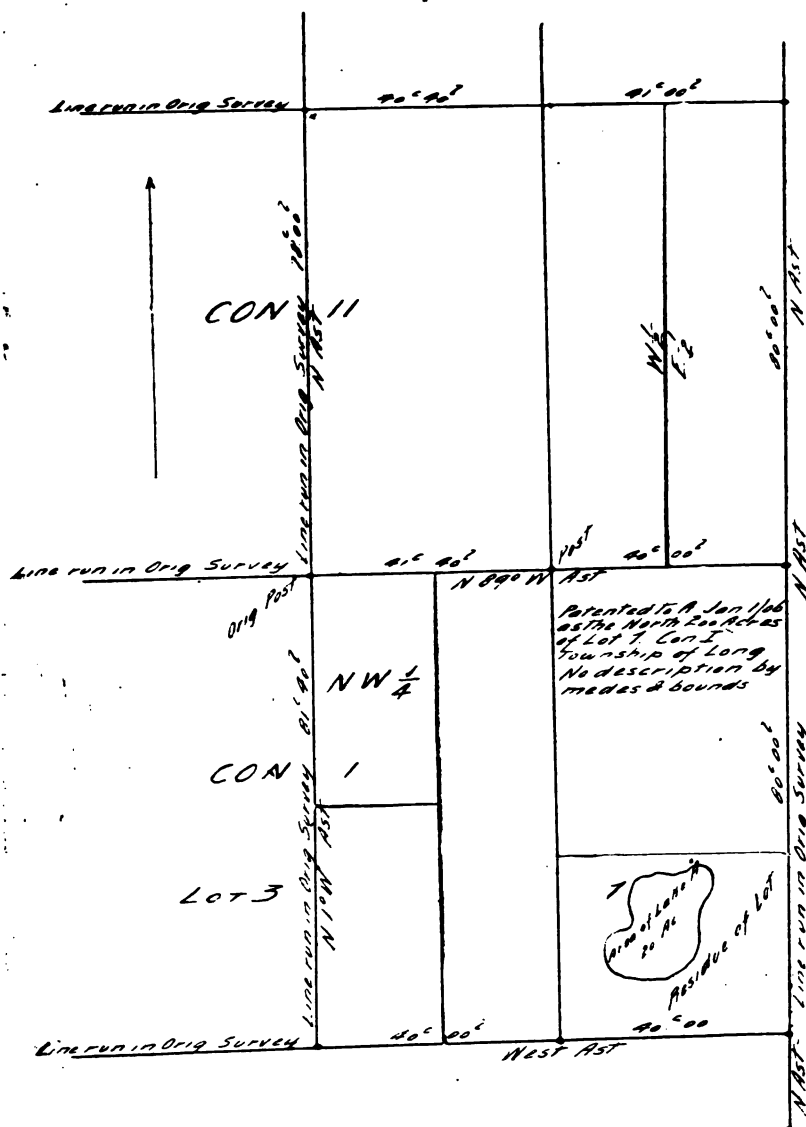 Line run in Orig Survey
40ᶜ 40ˡ
41ᶜ 00ˡ
CON 11
Line run in Orig Survey 78ᶜ00ˡ
N Ast
W½
E½
80ᶜ00ˡ
N Ast
Line run in Orig Survey
Orig Post
41ᶜ 40ˡ
N 89° W Ast
Post
40ᶜ00ˡ
N Ast
Patented to A Jan 1/06
as the North 200 Acres
of Lot 1. Con I
Township of Long
No description by
medes & bounds
NW ¼
CON 1
LOT 3
Line run in Orig Survey 81ᶜ40ˡ
N 1° W Ast
80ᶜ00ˡ
Line run in Orig Survey
1
Area of Lake A
20 Ac
Residue of Lot
Line run in Orig Survey
40ᶜ 00ˡ
West Ast
40ᶜ00
N Ast